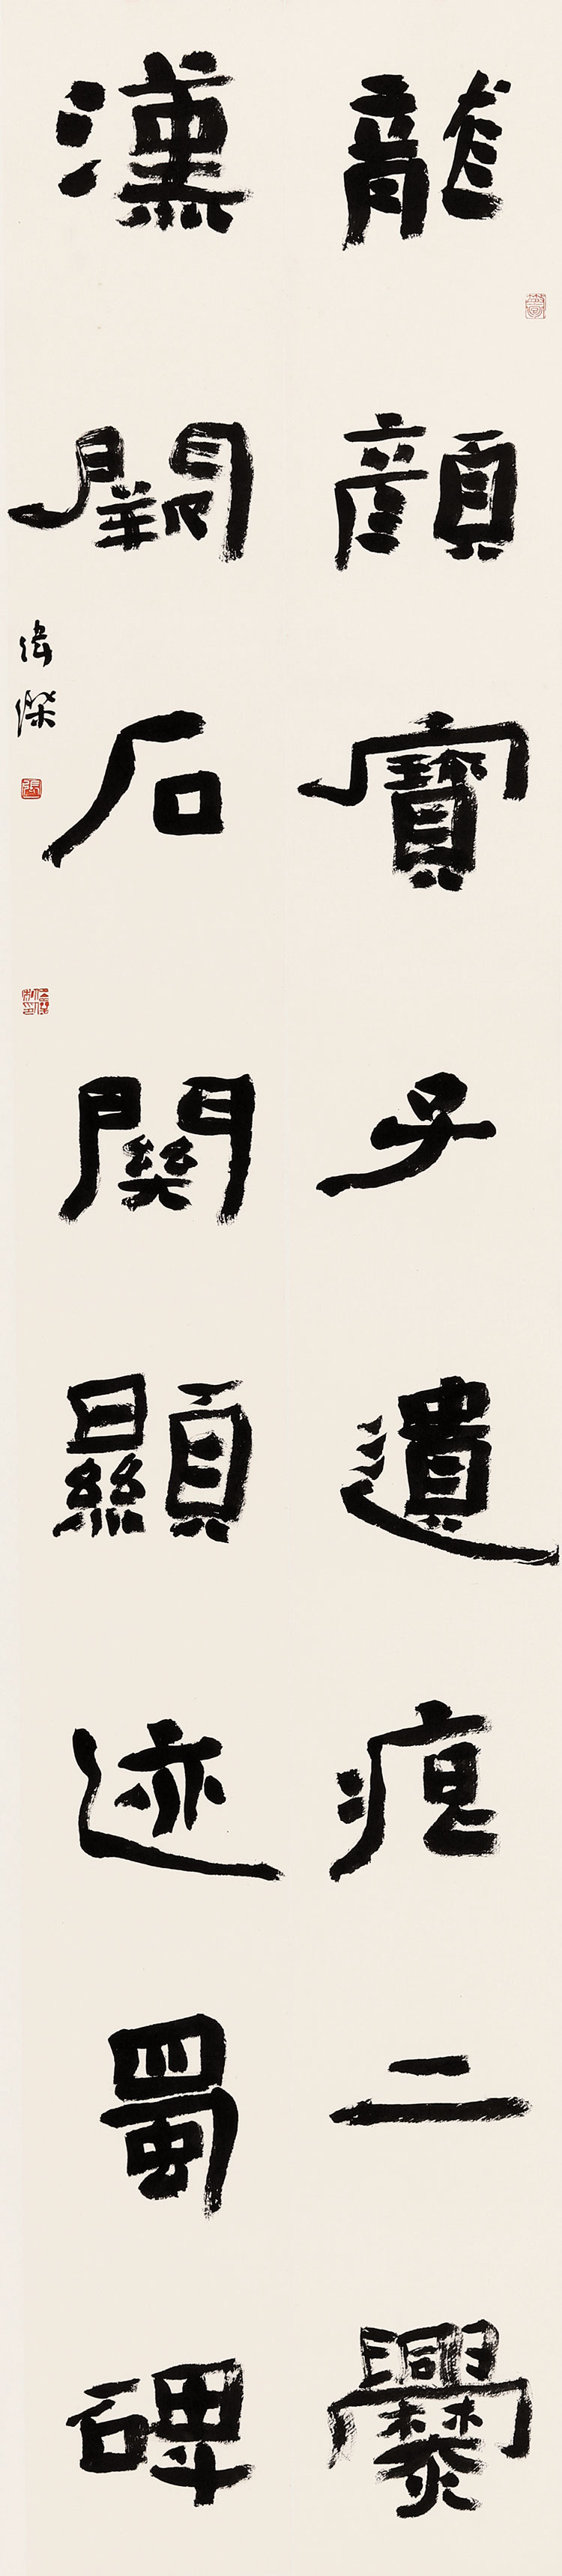 龍顏寶子遺痕二爨
漢闕石關顯迹蜀碑
偉傑